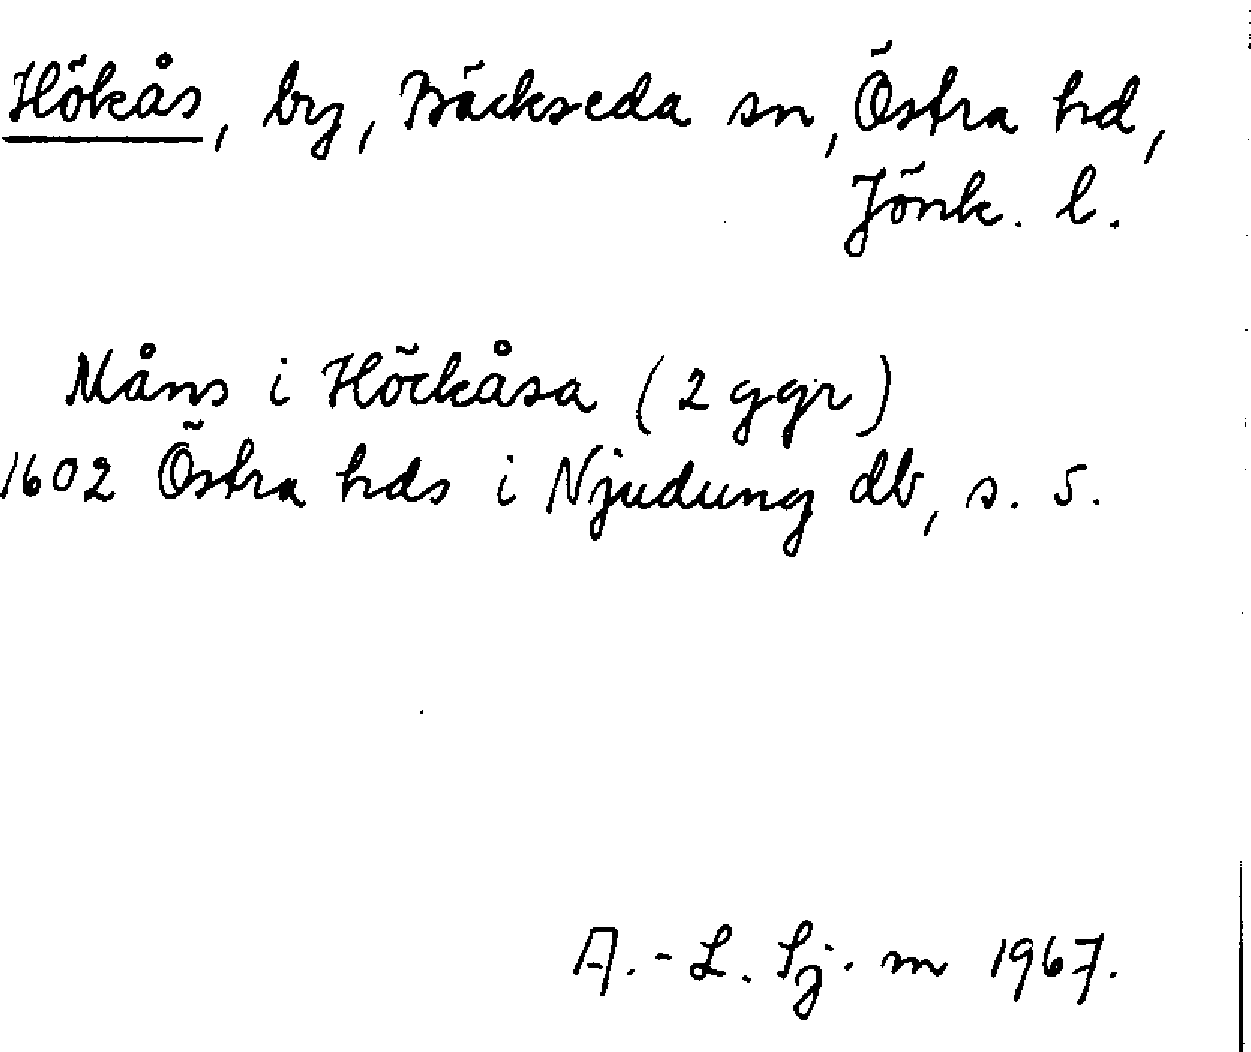 Hökås, by, Bäckseda sn, Östra hd,
Jönk. l.
Måns i Höckåsa (2 ggr)
1602 Östra hds i Njudung db, s. 5.
A.-L. Sj. m 1967.